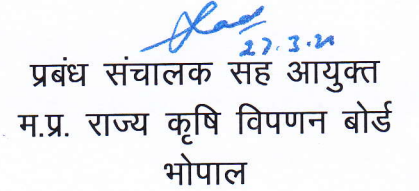 27.3.20
प्रबंध संचालक सह आयुक्त
म.प्र. राज्य कृषि विपणन बोर्ड
भोपाल